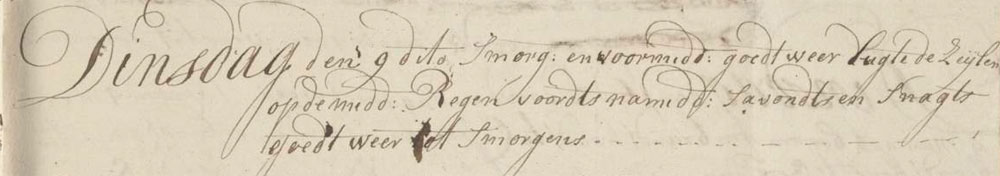 Dinsdag den 9 dito Smorg: en voormidd: goedt weer lugte de Zeylen
op de midd: Regen voordts namidd: Savondts en Snagts
goedt weer tot Smorgens